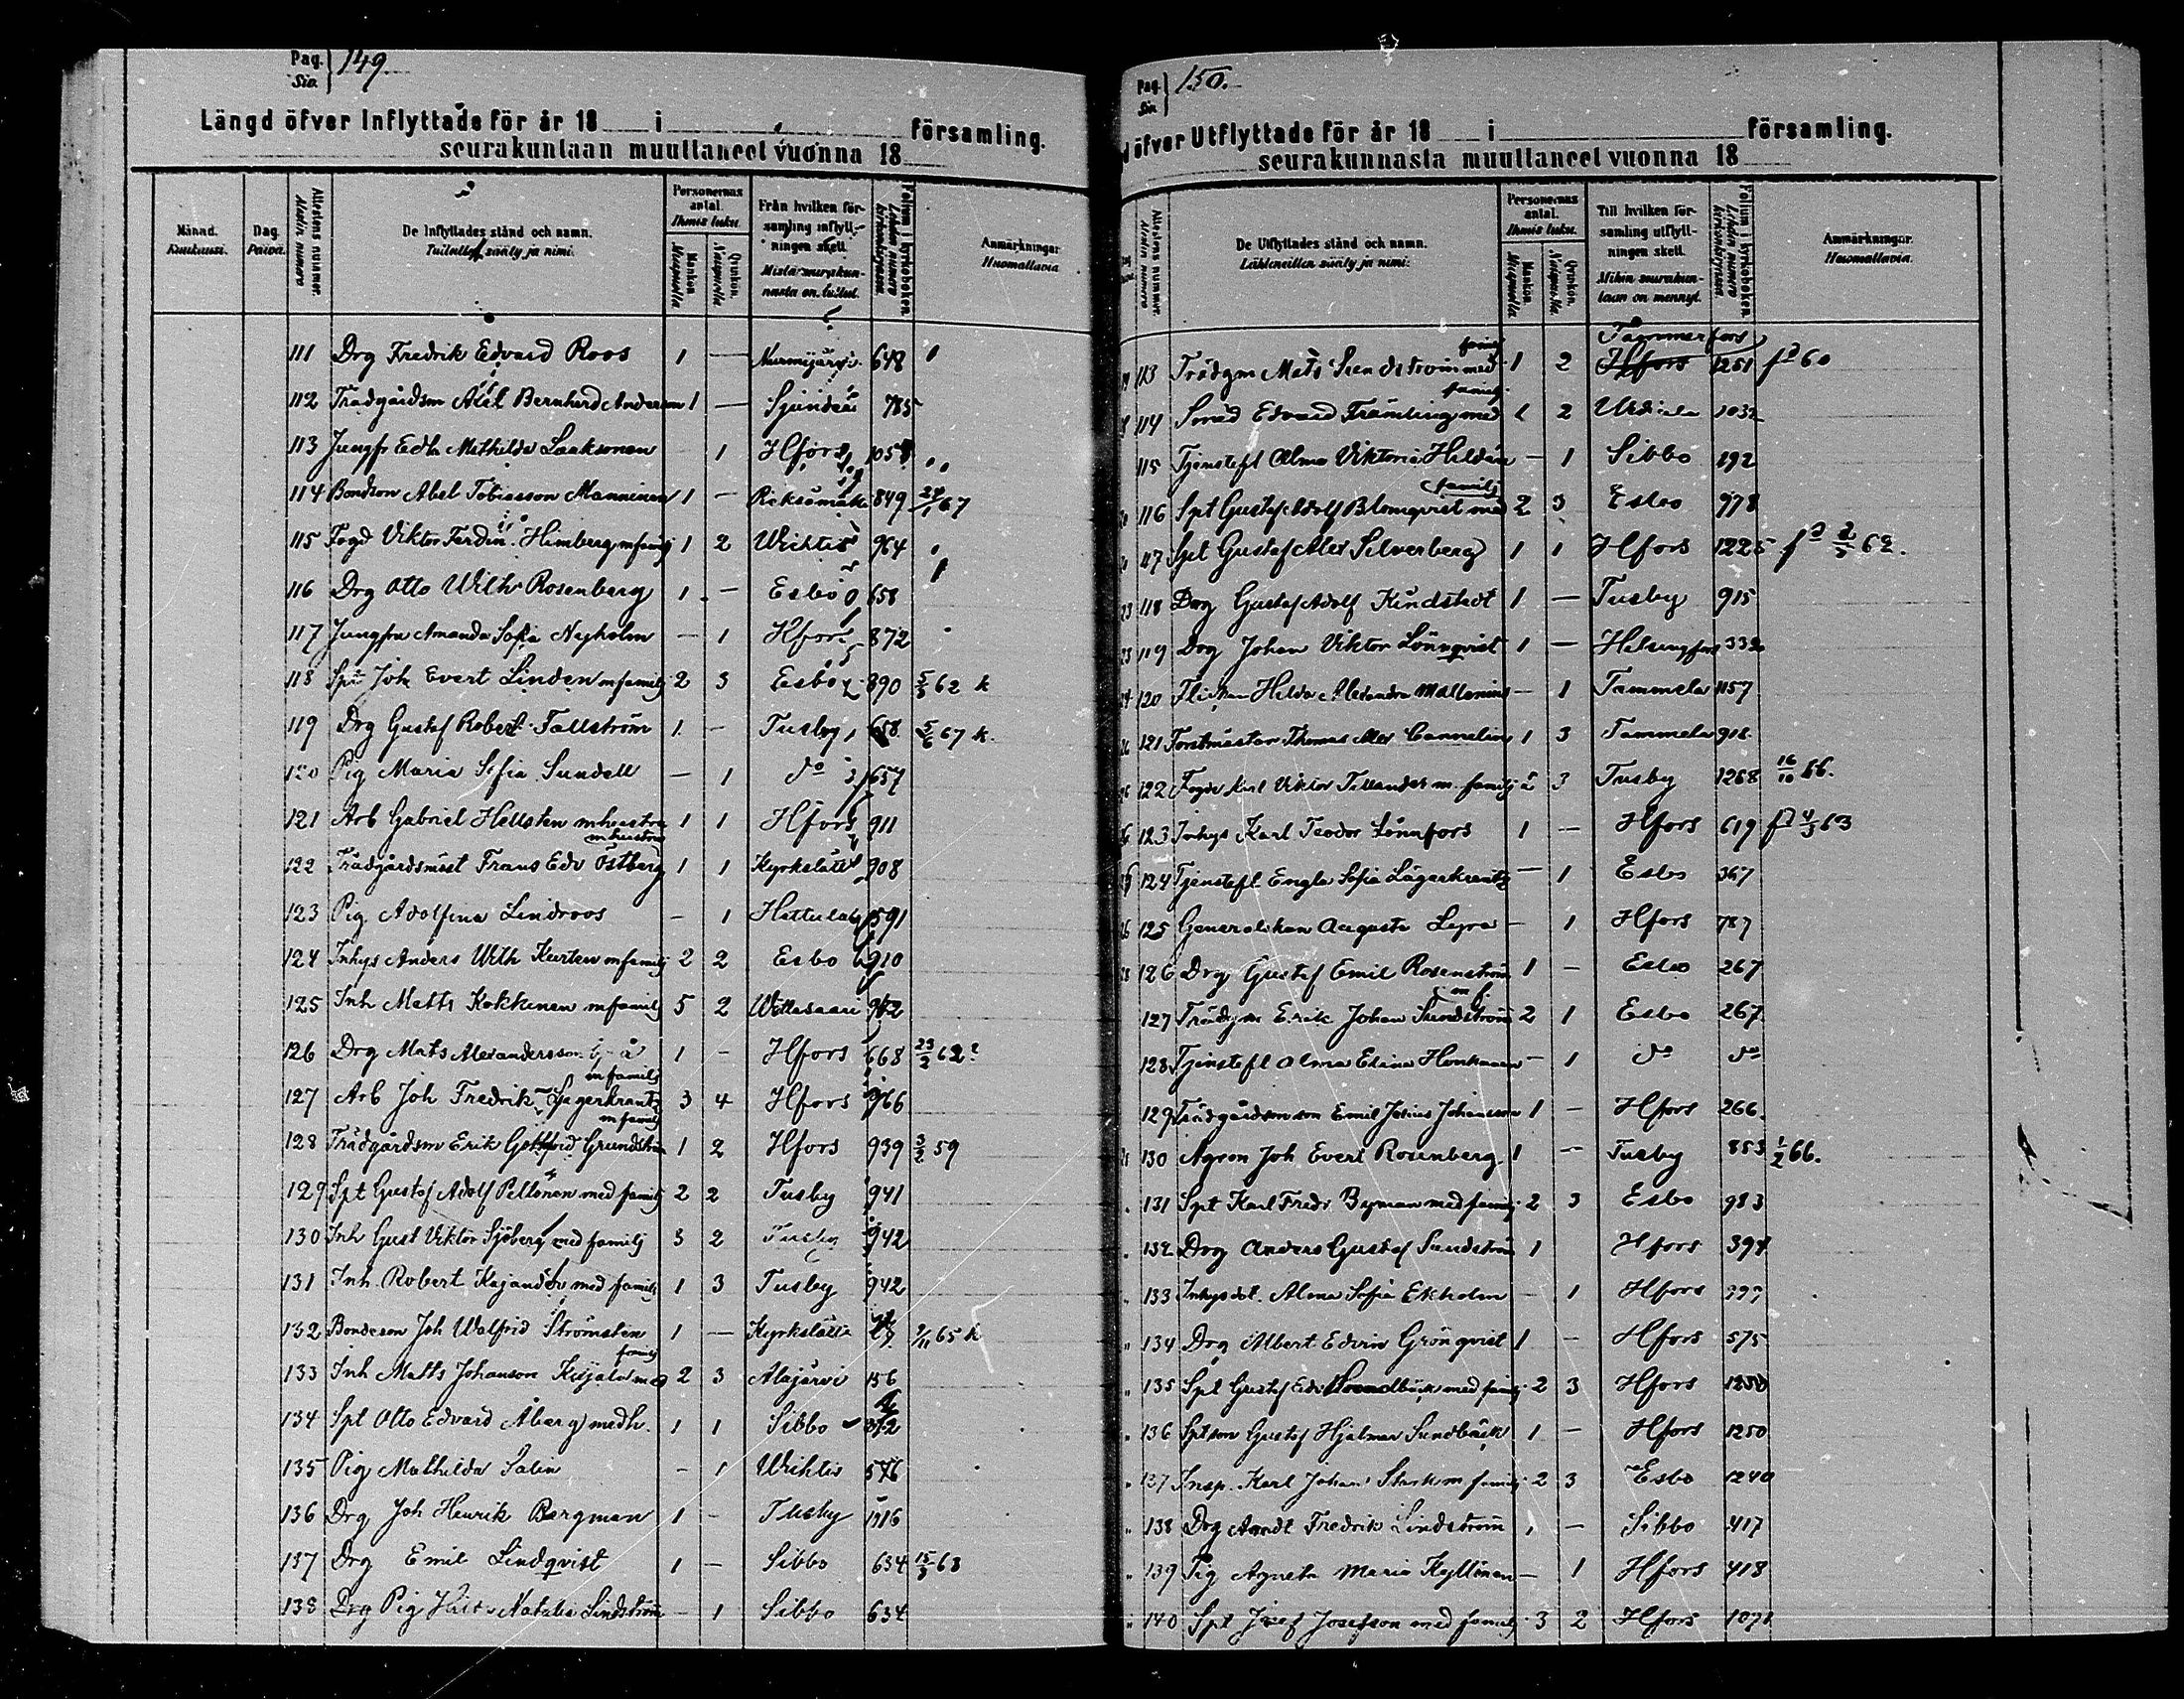 Pag. Siv. } 149.
Längd öfver Inflyttade för år 18 i församling.
seurakuntaan muuttaneet vuonna 18
Månad. Kuukausi.
Dag. Päivä.
Attestens nummer. Attestin numero
De Inflyttades stånd och namn. sääty ja nimi.
Personernas antal. Ihmis luku.
Mankön. Miespuolia
Qvinkön. Naispuolia
Från hvilken församling inflyttningen skett. Mistä seurakunnasta on tullut.
Folium i kyrkoboken. Lehden numero kirkonkirjassa
Anmärkningar. Huomattavia.
111 Drg Fredrik Edvard Roos 1 — Nurmijärvi 648
112 Trädgårdsm Axel Bernhard Anderson 1 — Sjundeå 785
113 Jungfr Edla Mathilda Laaksonen 1 Hfors 1057
114 Bondson Abel Tobiasson Manninen 1 — 849 67
115 Fogd Viktor Ferdin. Himberg m familj 1 2 Wichtis 964
116 Drg Otto Wilh Rosenberg 1 — Esbo 658
117 Jungfru Amanda Sofia Nyholm — 1 Hfors 872
118 Spt Joh Evert Linden m familj 2 3 Esbo 890 5/3 62 k
119 Drg Gustaf Robert Fallström 1 — Tusby 658 5/6 67 k.
120 Pig Maria Sofia Sundell — 1 do 657
121 Arb Gabriel Hellsten m hustru 1 1 Hfors 911
m hustru
122 Trädgårdsmäst Frans Edv Östberg 1 1 Kyrkslätt 908
123 Pig Adolfina Lindroos — 1 Hattula 591
124 Inhys Anders Wilh Kurten m familj 2 2 Esbo 910
125 Inh Matts Kokkinen m familj 5 2 Wiitasaari 912
126 Drg Mats Alexandersson 1 — Hfors 668 23/2 62
m familj
127 Arb Joh Fredrik Lagerkrantz 3 4 Hfors 966
m familj
128 Trädgårdsm Erik Gottfrid Grundström 1 2 Hfors 939 3/2 59
129 Spt Gustaf Adolf Peltonen med familj 2 2 Tusby 941
130 Inh Gust Viktor Sjöberg med familj 3 2 Tusby 942
131 Inh. Robert Kajander med familj 1 3 Tusby 942
132 Bondeson Joh Walfrid Strömsten 1 — Kyrkslätt 9/11 65 k
familj
133 Inh Matts Johanson med 2 3 Alajärvi 156
134 Spt Otto Edvard Åberg med h. 1 1 Sibbo 372
135 Pig Mathilda Salin — 1 Wichtis 576
136 Drg Joh Henrik Bergman 1 — Tusby
137 Drg Emil Lindqvist 1 — Sibbo 634 15/3 63
138 Drg Pig Natalia Lindström — 1 Sibbo 634
Pag. Siv. } 150.
öfver Utflyttade för år 18 i församling.
seurakunnasta muuttaneet vuonna 18
Attestens nummer. Attestin numero
De Utflyttades stånd och namn. Lähteneitten sääty ja nimi.
Personernas antal. Ihmis luku.
Mankön. Miespuolia
Qvinkön. Naispuolia
Till hvilken församling utflyttningen skett. Mihin seurakuntaan on mennyt.
Folium i kyrkoboken. Lehden numero kirkonkirjassa
Anmärkningar. Huomattavia.
familj Tammerfors
113 Trädgm Mats med 1 2 Hfors 1251 60
familj
114 Edvard Främling med 1 2 Urdiala 1032
115 Tjenstefl Alma Viktoria Helden — 1 Sibbo 192
familj
116 Spt Gustaf Adolf Blomqvist med 2 3 Esbo 978
117 Spt Gustaf Alex Silverberg 1 1 Hfors 1225 62.
118 Drg Gustaf Adolf Kindstedt 1 — Tusby 915
119 Drg Johan Viktor Lönnqvist 1 — Helsingfors 332
120 Flickan Hilda Alexandra Mallenius — 1 Tammela 1157
121 Forstmästar Thomas Alex Cannelin 1 3 Tammela 916
122 Fogde Karl Viktor Tillander m. familj 2 3 Tusby 1268 16/10 66.
123 Inhys Karl Teodor Lönnfors 1 — Hfors 619 63
124 Tjenstefl. Engla Sofia Lagerkrantz — 1 Esbo 367
125 Generalskan Augusta Lyra — 1 Hfors 787
126 Drg Gustaf Emil Rosenström 1 — Esbo 267
m f.
127 Trädgm Erik Johan Sundström 2 1 Esbo 267
128 Tjenstefl Alma Elina Honkanen — 1 do do
129 Trädgårdsm son Emil Julius Johansson 1 — Hfors 266.
130 Agron Joh Evert Rosenberg 1 — Tusby 853 1/2 66.
131 Spt Karl Fredr. Byman med familj 2 3 Esbo 983
132 Drg Anders Gustaf Sundström 1 Hfors 394
133 Inhys dot. Alma Sofia Ekholm — 1 Hfors 399
134 Drg Albert Edvin Grönqvist 1 — Hfors 575
135 Spt Gustaf Edv Sundbäck med familj 2 3 Hfors 1250
136 Spt son Gustaf Hjalmar Sundbäck 1 — Hfors 1250
137 Insp. Karl Johan Stark m familj 2 3 Esbo 1240
138 Drg Arndt Fredrik Lindström 1 — Sibbo 417
139 Pig Agneta Maria Kyllönen — 1 Hfors 418
140 Spt Josef Josefson med familj 3 2 Hfors 1071